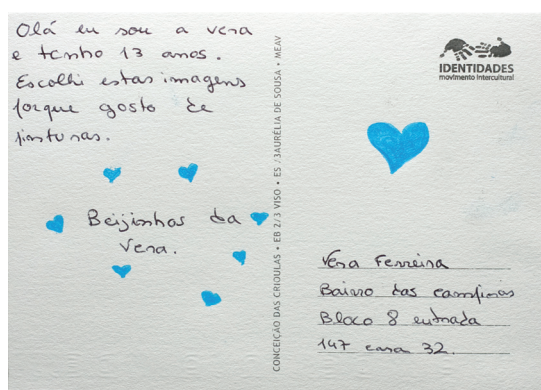 Olá eu sou a vera
e tenho 13 anos.
Escolhi estas imagens
porque gosto de
pinturas.
Beijinhos da
Vera.
CONCEIÇÃO DAS CRIOULAS • EB 2/3 VISO • ES /3AURÉLIA DE SOUSA • MEAV
IDENTIDADES
movimento intercultural
Vera Ferreira
Bairro das campinas
Bloco 8 entrada
147 casa 32.